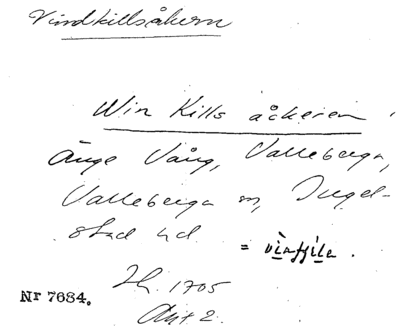 Vindkillsåkern
Win Kills åckeren
Änge Vång, Valleberga,
Valleberga sn, Ingel-
stad hd
Lh. 1705
Akt 2.
Nr 7684.